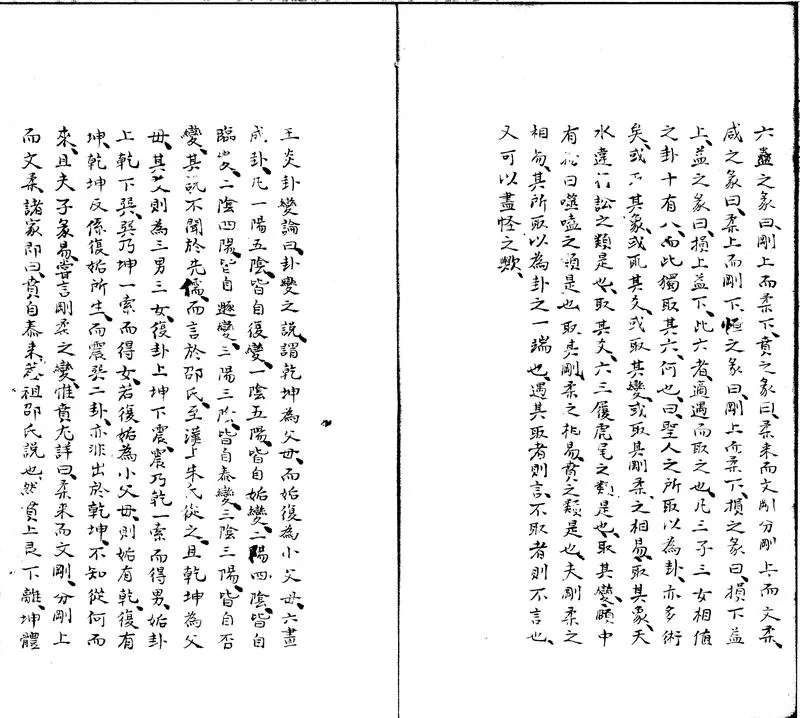 六蠱之彖曰、剛上而柔下、賁之彖曰、柔来而文剛分剛上、而文柔、
咸之彖曰、柔上而剛下、恒之彖曰、剛上而柔下、損之彖曰、損下益
上、益之彖曰、損上益下、此六者適遇而取之也、凡三子三女相值
之卦十有八、而此獨取其六、何也、曰聖人之所取以為卦、亦多術
矣、或取其象、或取其爻、或取其變、或取其剛柔之相易、取其象、天
水違行訟之類是也、取其爻、六三履虎尾之類是也、取其變、頤中
有物曰噬嗑之類是也、取其剛柔之相易、賁之類是也、夫剛柔之
相易、其所取以為卦之一端也、遇其取者則言、不取者則不言也、
又可以盡怪之歟、
王炎卦變論曰、卦變之説、謂乾坤為父母、而姤復為小父母、六畫
成卦、凡一陽五陰、皆自復變、一陰五陽、皆自姤變、二陽四陰、皆自
臨變、二陰四陽、皆自遯變、三陽三陰、皆自泰變、三陰三陽、皆自否
變、其説不聞於先儒、而言於邵氏、至漢上朱氏從之、且乾坤為父
母、其爻則為三男三女、復卦上坤下震、震乃乾一索而得男、姤卦
上乾下巽、巽乃坤一索而得女、若復姤為小父母、則姤有乾、復有
坤、乾坤反係復姤所生、而震巽二卦、亦非出於乾坤、不知從何而
來、且夫子彖易、嘗言剛柔之變、惟賁尤詳曰、柔来而文剛、分剛上
而文柔、諸家即曰、賁自泰来、蓋祖邵氏説也、然賁上艮下離、坤體